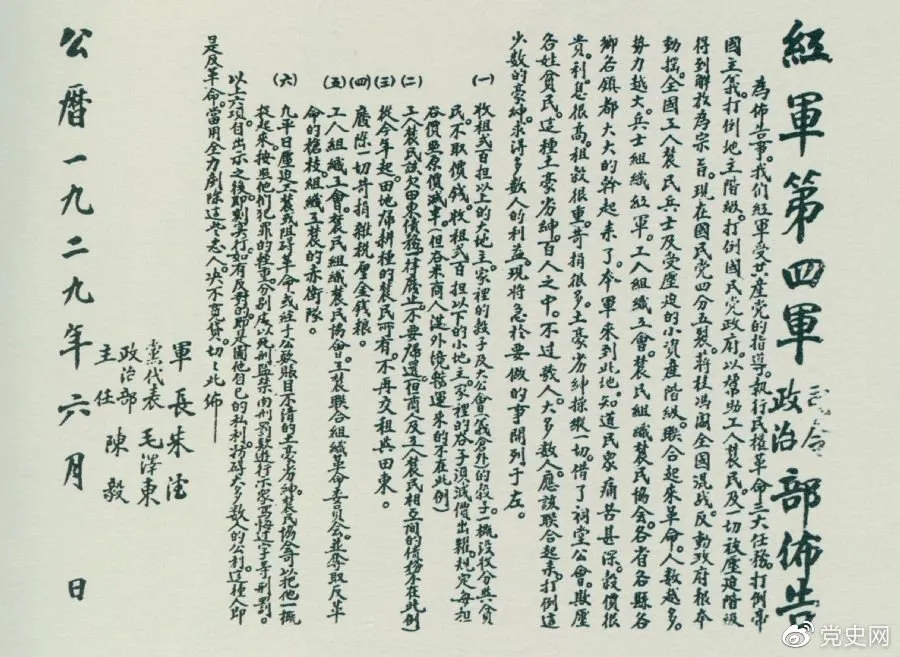 紅軍第四軍司令政治部佈告
為佈告事。我們紅軍受共產黨的指導。執行民權革命三大任務。打倒帝
國主義。打倒地主階級。打倒國民党政府。以幫助工人農民。及一切被壓迫階級
得到解放為宗旨。現在國民党四分五裂。蔣桂馮閻全國混战。反動政府根本
動搖。全國工人農民兵士及受壓迫的小資產階級。聯合起來革命。人數越多。
勢力越大。兵士組織紅軍。工人組織工會。農民組織農民協会。各省各縣各
鄉各鎮都大大的幹起來了。本軍來到此地。知道民眾痛苦甚深。穀價很
貴。利息很高。租穀很重。苛捐很多。土豪劣紳操縱一切。借了祠堂公會。欺壓
各姓貧民。這種土豪劣紳。百人之中。不过数人。大多数人。應該联合起來。打倒這
少数的豪紳。求得多数人的利益。現將急於要做的事開列于左。
(一) 收租弍百担以上的大地主。家裡的穀子及大公會(義倉外)的穀子。一概沒收分與貧
民。不取價钱。收租弍百担以下的小地主。家裡的谷子。須減價出糶。規定每担
谷價照原價減半。(但谷米商人從外境轉運來的不在此例)
(二) 工人農民該欠田東債務。一律廢止。不要歸還。(但商人及工人農民相互間的債務不在此例)
(三) 從今年起。田地歸耕種的農民所有。不再交租與田東。
(四) 廢除一切苛捐雜稅厘金錢糧。
(五) 工人組織工會。農民組織農民協會。工農联合組織革命委員会。並奪取反革
命的槍枝。組織工農的赤衛隊。
(六) 凡平日壓迫工農或阻碍革命。或经手公款賬目不清的土豪劣紳。農民協会可以把他一概
捉起來。按照他们犯罪的輕重。分別處以死刑監禁肉刑罰款遊行示眾寫悔过字等刑罰。
以上六項自出示之後。即刻实行。如有反對的。即是圖他自己的私利。妨碍大多数人的公利。這種人即
是反革命。當用全力剷除這些惡人。决不寬貸。切切此佈
軍長 朱德
黨代表 毛澤東
政治部主任 陳毅
公曆一九二九年六月 日
党史网